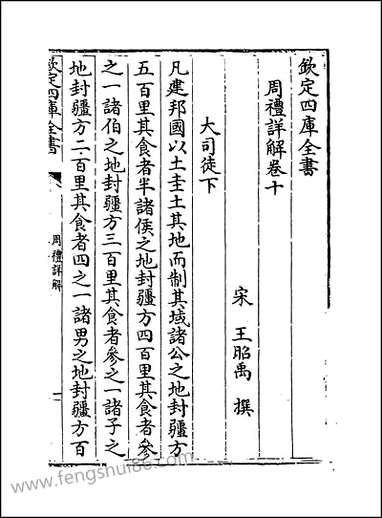 欽定四庫全書
周禮詳解卷十
宋 王昭禹 撰
大司徒下
凡建邦國以土圭土其地而制其域諸公之地封疆方
五百里其食者半諸侯之地封疆方四百里其食者參
之一諸伯之地封疆方三百里其食者參之一諸子之
地封疆方二百里其食者四之一諸男之地封疆方百
欽定四庫全書
周禮詳解
一
www.fengshui86.com